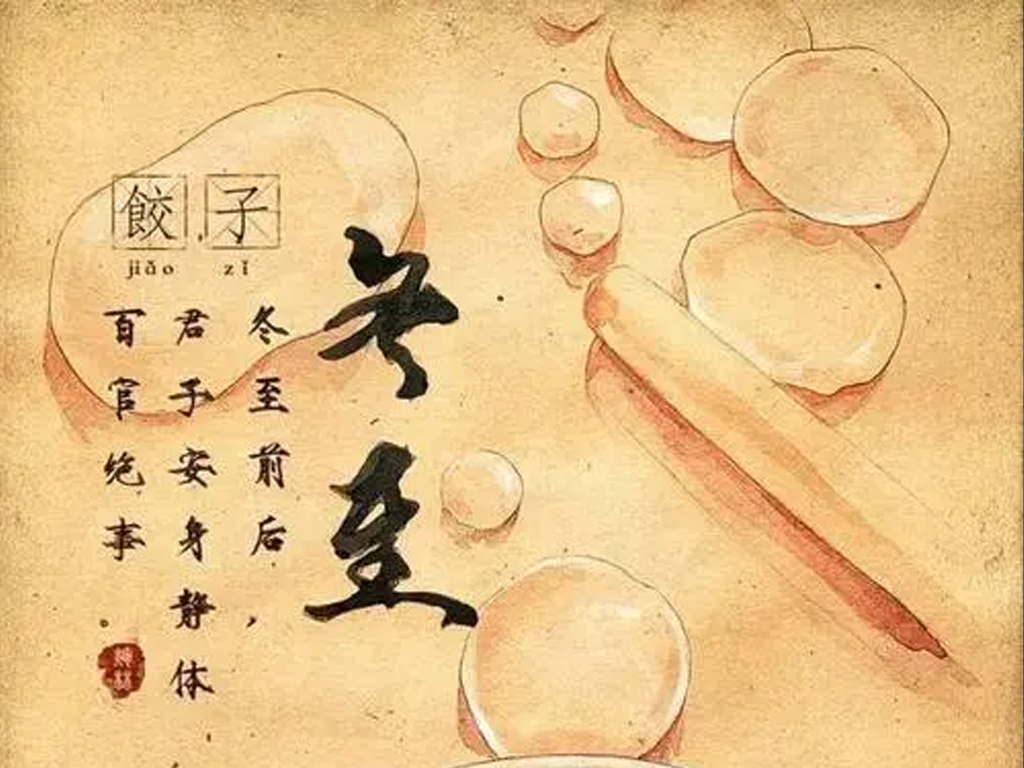 冬至
餃子
jiǎo zǐ
冬至前后，
君子安身静体，
百官绝事。